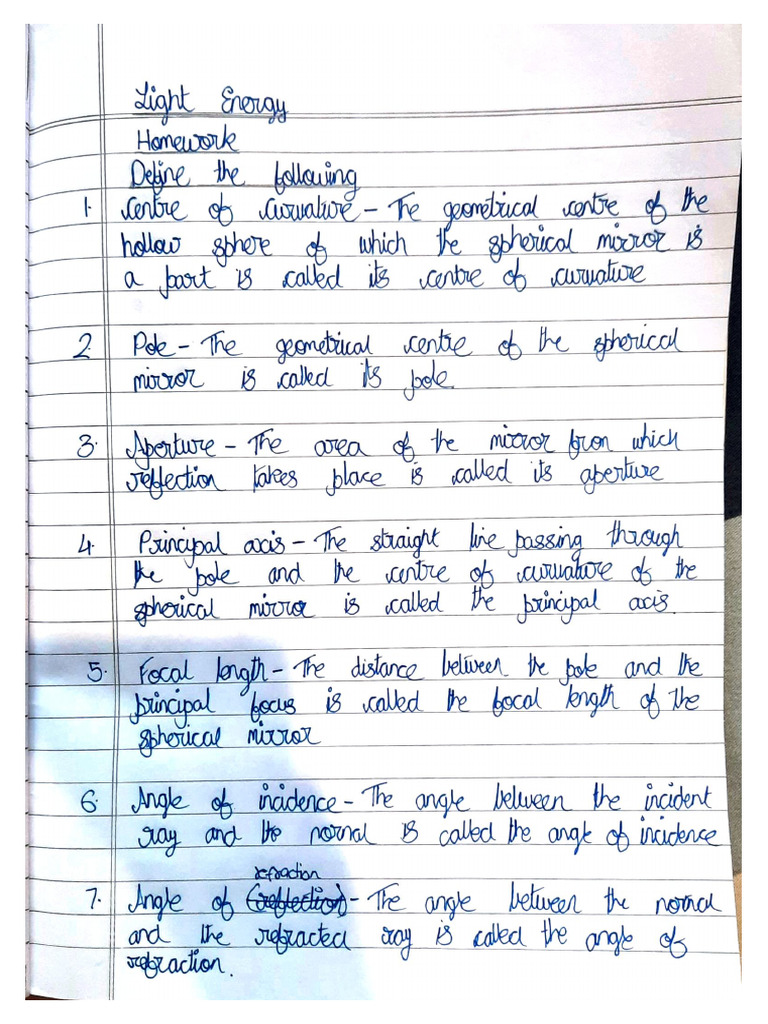 Light Energy
Homework
Define the following
1. Centre of curvature - The geometrical centre of the
hollow sphere of which the spherical mirror is
a part is called its centre of curvature
2. Pole - The geometrical centre of the spherical
mirror is called its pole.
3. Aperture - The area of the mirror from which
reflection takes place is called its aperture
4. Principal axis - The straight line passing through
the pole and the centre of curvature of the
spherical mirror is called the principal axis.
5. Focal length - The distance between the pole and the
principal focus is called the focal length of the
spherical mirror
6. Angle of incidence - The angle between the incident
ray and the normal is called the angle of incidence
refraction
7. Angle of (reflection) - The angle between the normal
and the refracted ray is called the angle of
refraction.